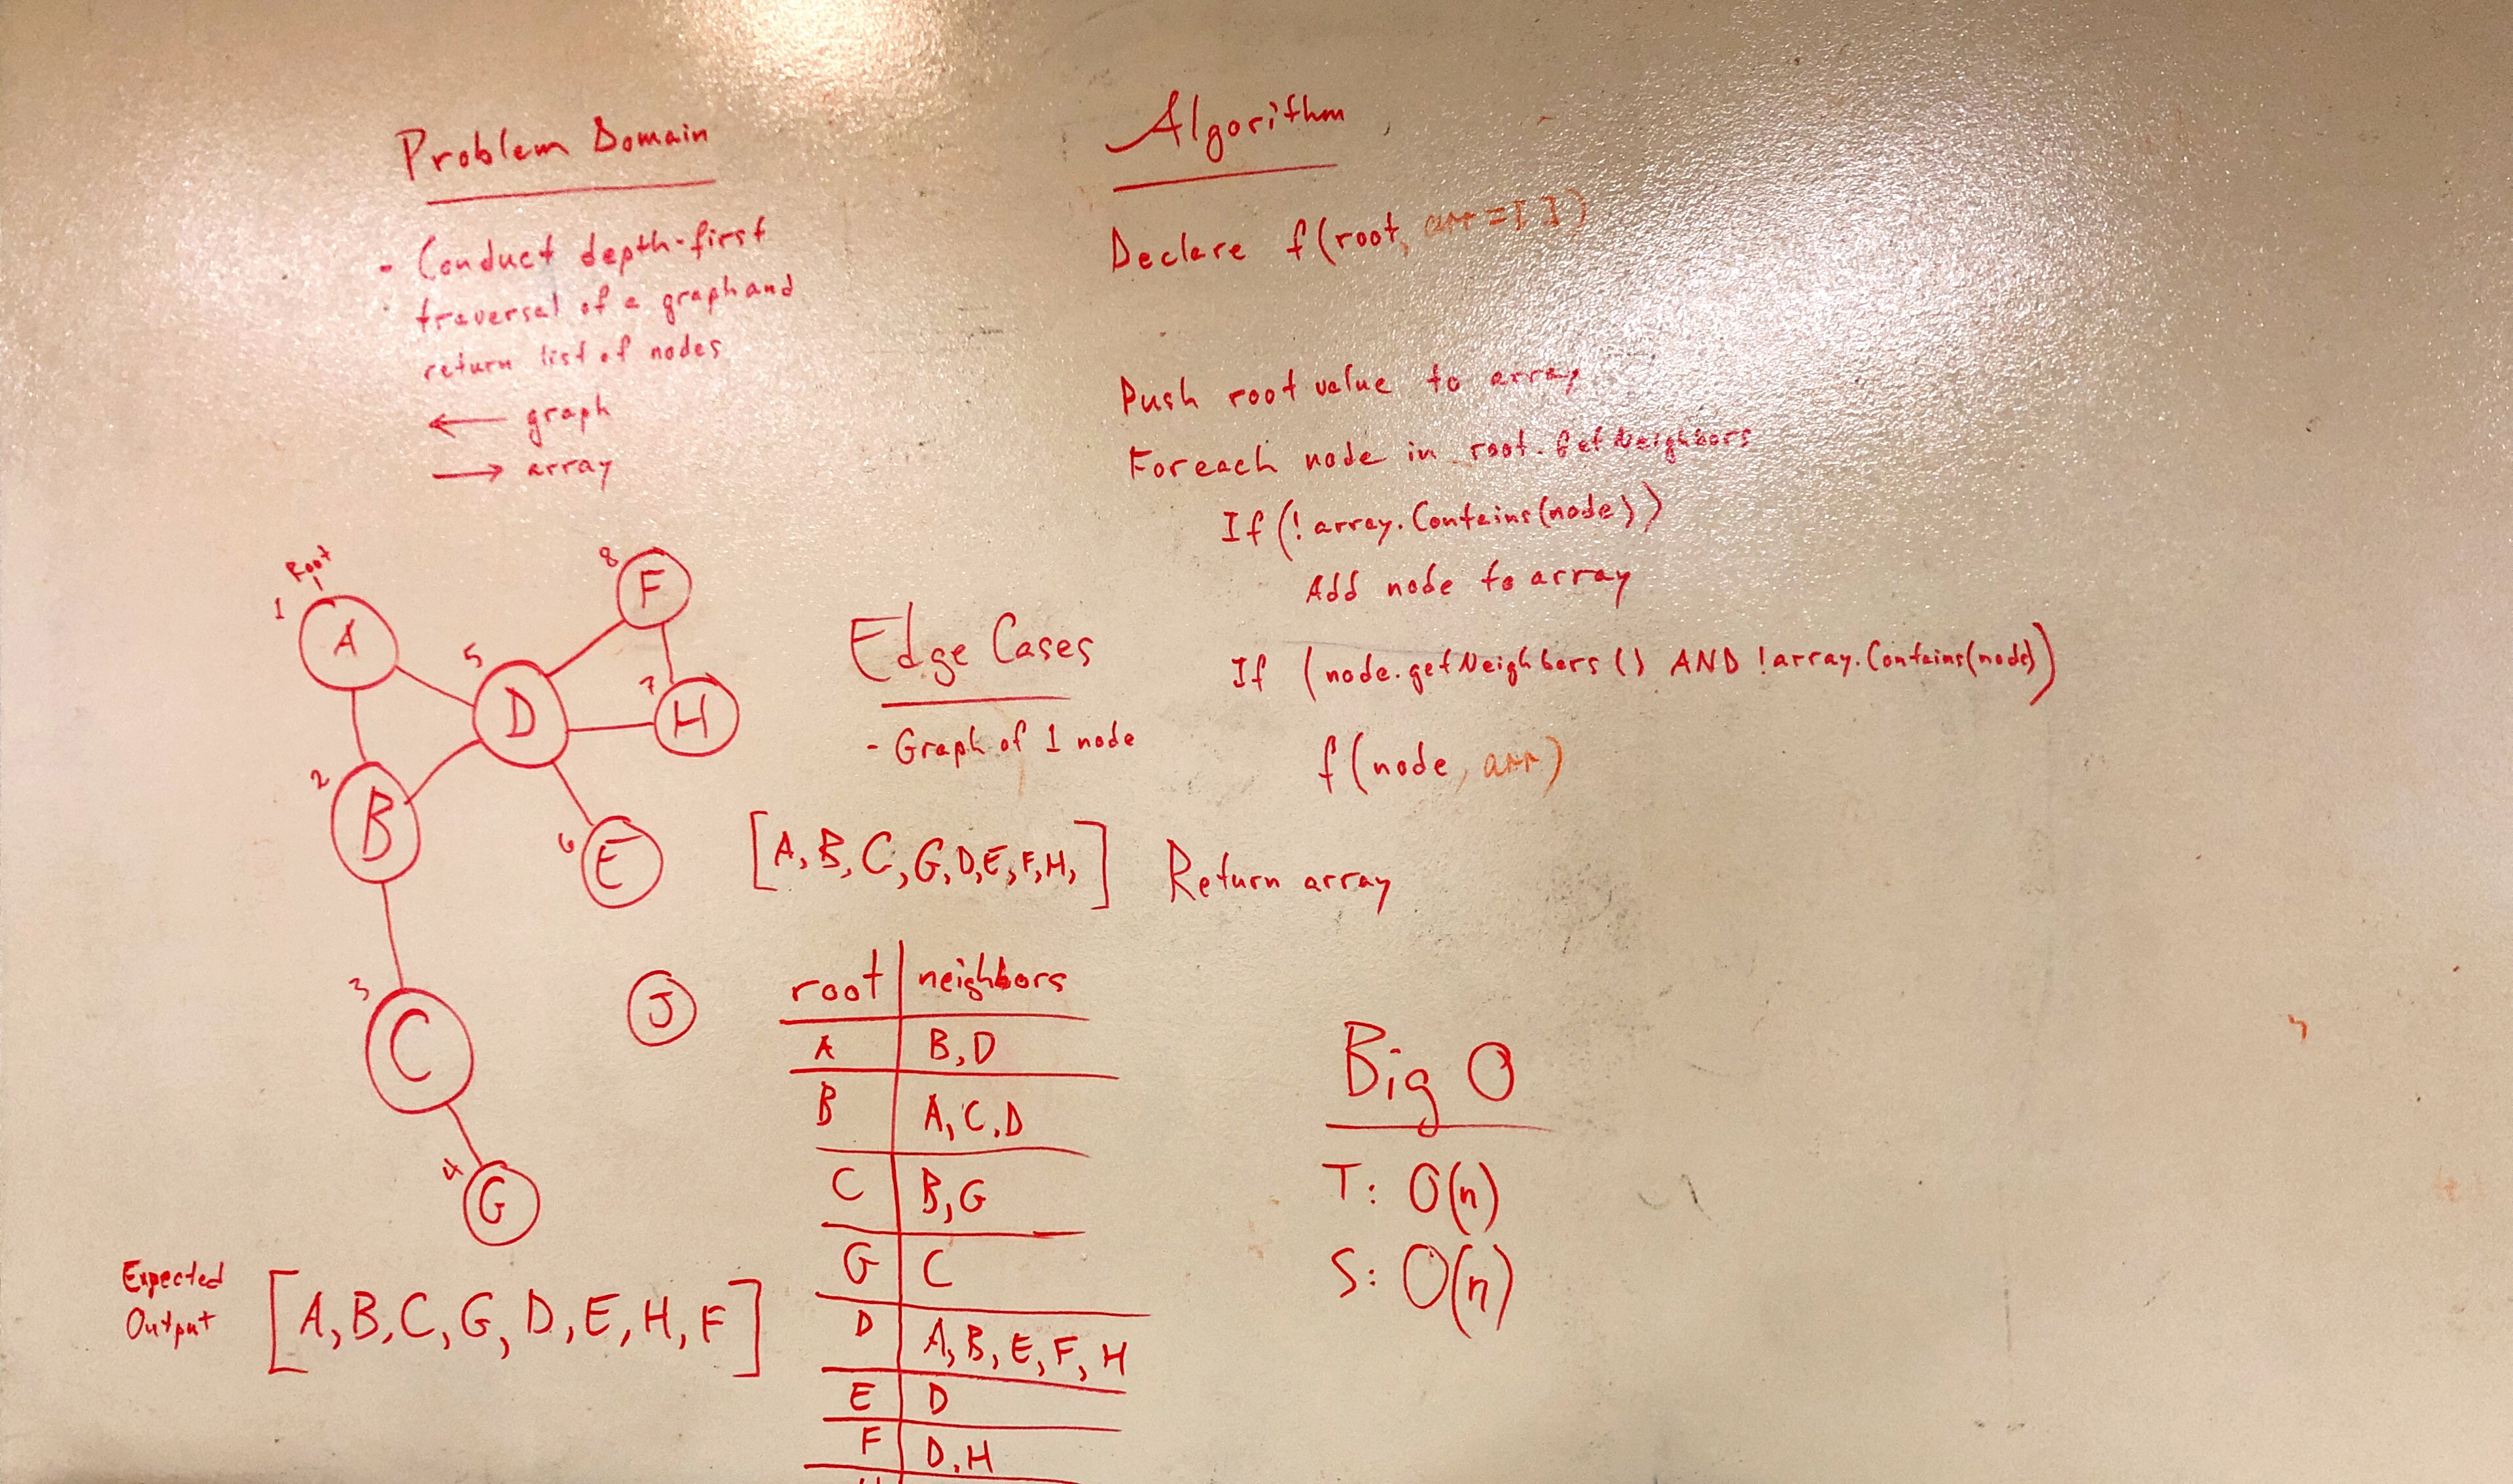 Problem Domain
- Conduct depth-first
traversal of a graph and
return list of nodes
← graph
→ array
Root
1
A
2
B
3
C
4
G
5
D
6
E
7
H
8
F
J
Expected
Output
[A, B, C, G, D, E, H, F]
Edge Cases
- Graph of 1 node
[A, B, C, G, D, E, F, H, ]
root | neighbors
A | B, D
B | A, C, D
C | B, G
G | C
D | A, B, E, F, H
E | D
F | D, H
Algorithm
Declare f(root, arr = [])
Push root value to array
Foreach node in root.GetNeighbors
If (!array.Contains(node))
Add node to array
If (node.getNeighbors() AND !array.Contains(node))
f(node, arr)
Return array
Big O
T: O(n)
S: O(n)